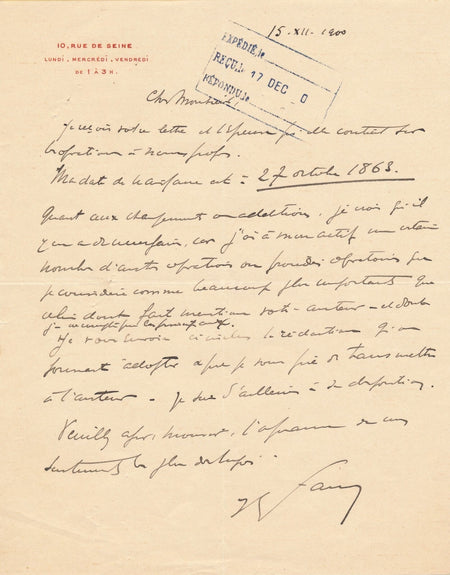 10, RUE DE SEINE
LUNDI, MERCREDI, VENDREDI
DE 1 À 3 H.
15-XII-1900
EXPÉDIÉ, le
REÇU, le 17 DEC 0
RÉPONDU, le
Cher Monsieur
Je reçois votre lettre et
Ma date de naissance est : 27 octobre 1863.
Quant aux changements ou additions, je crois qu'il
y en a à faire, car j'ai à mon actif un certain
nombre d'autres opérations ou procédés opératoires que
je considère comme beaucoup plus importants que
celui dont fait mention votre auteur - et dont
Je vous envoie ci-inclus la rédaction qu'on
pourrait adopter et que je vous prie de transmettre
à l'auteur - Je suis d'ailleurs à sa disposition.
Veuillez agréer, Monsieur, l'assurance de mes
sentiments les plus distingués.